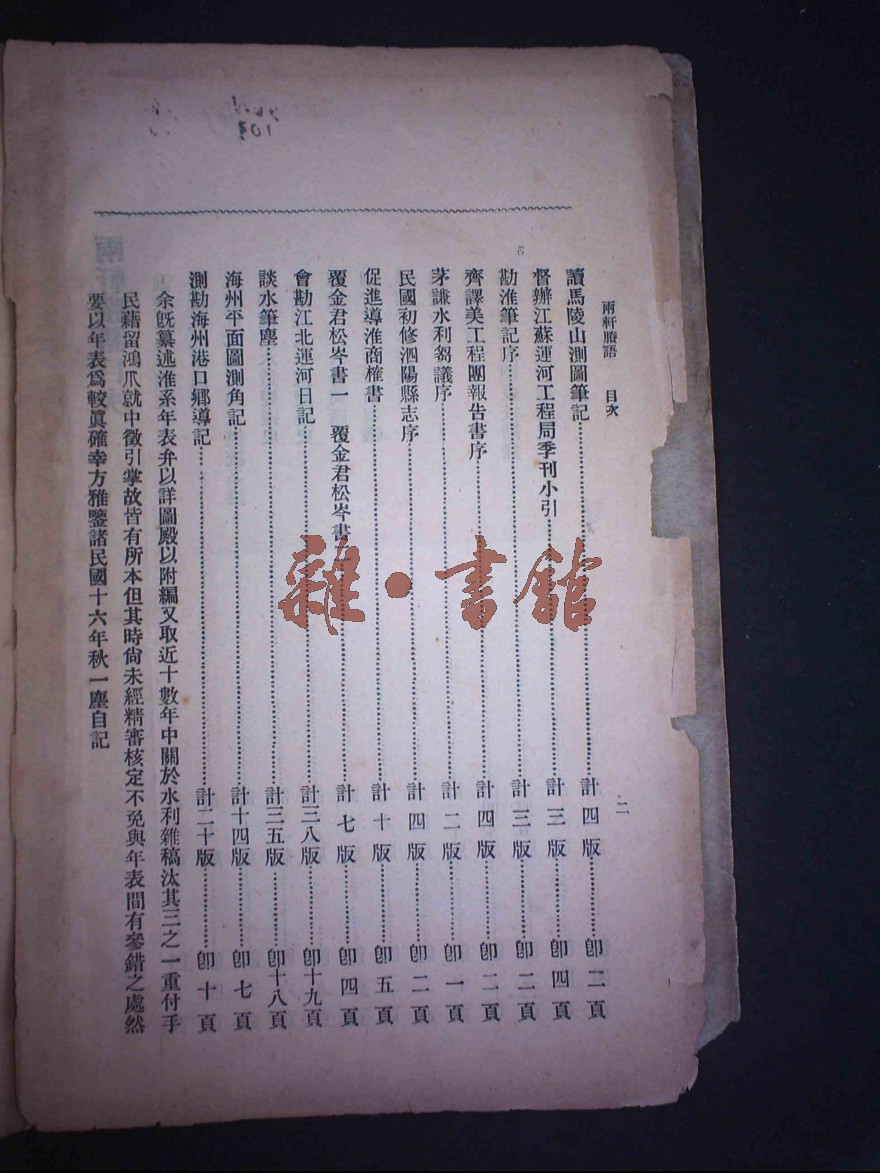 兩軒賸語　目次　二
讀馬陵山測圖筆記………計四版………卽二頁
督辦江蘇運河工程局季刊小引………計三版………卽四頁
勘淮筆記序………計三版………卽二頁
齊譯美工程團報告書序………計四版………卽二頁
茅謙水利芻議序………計二版………卽一頁
民國初修泗陽縣志序………計四版………卽二頁
促進導淮商榷書………計十版………卽五頁
覆金君松岑書一　覆金君松岑書二………計七版………卽四頁
會勘江北運河日記………計三八版………卽十九頁
談水筆塵………計三五版………卽十八頁
海州平面圖測角記………計十四版………卽七頁
測勘海州港口鄉導記………計二十版………卽十頁
余旣纂述淮系年表弁以詳圖殿以附編又取近十數年中關於水利雜稿汰其三之一重付手
民藉留鴻爪就中徵引掌故皆有所本但其時尙未經精審核定不免與年表間有參錯之處然
要以年表爲較眞確幸方雅鑒諸民國十六年秋一塵自記
雜·書館